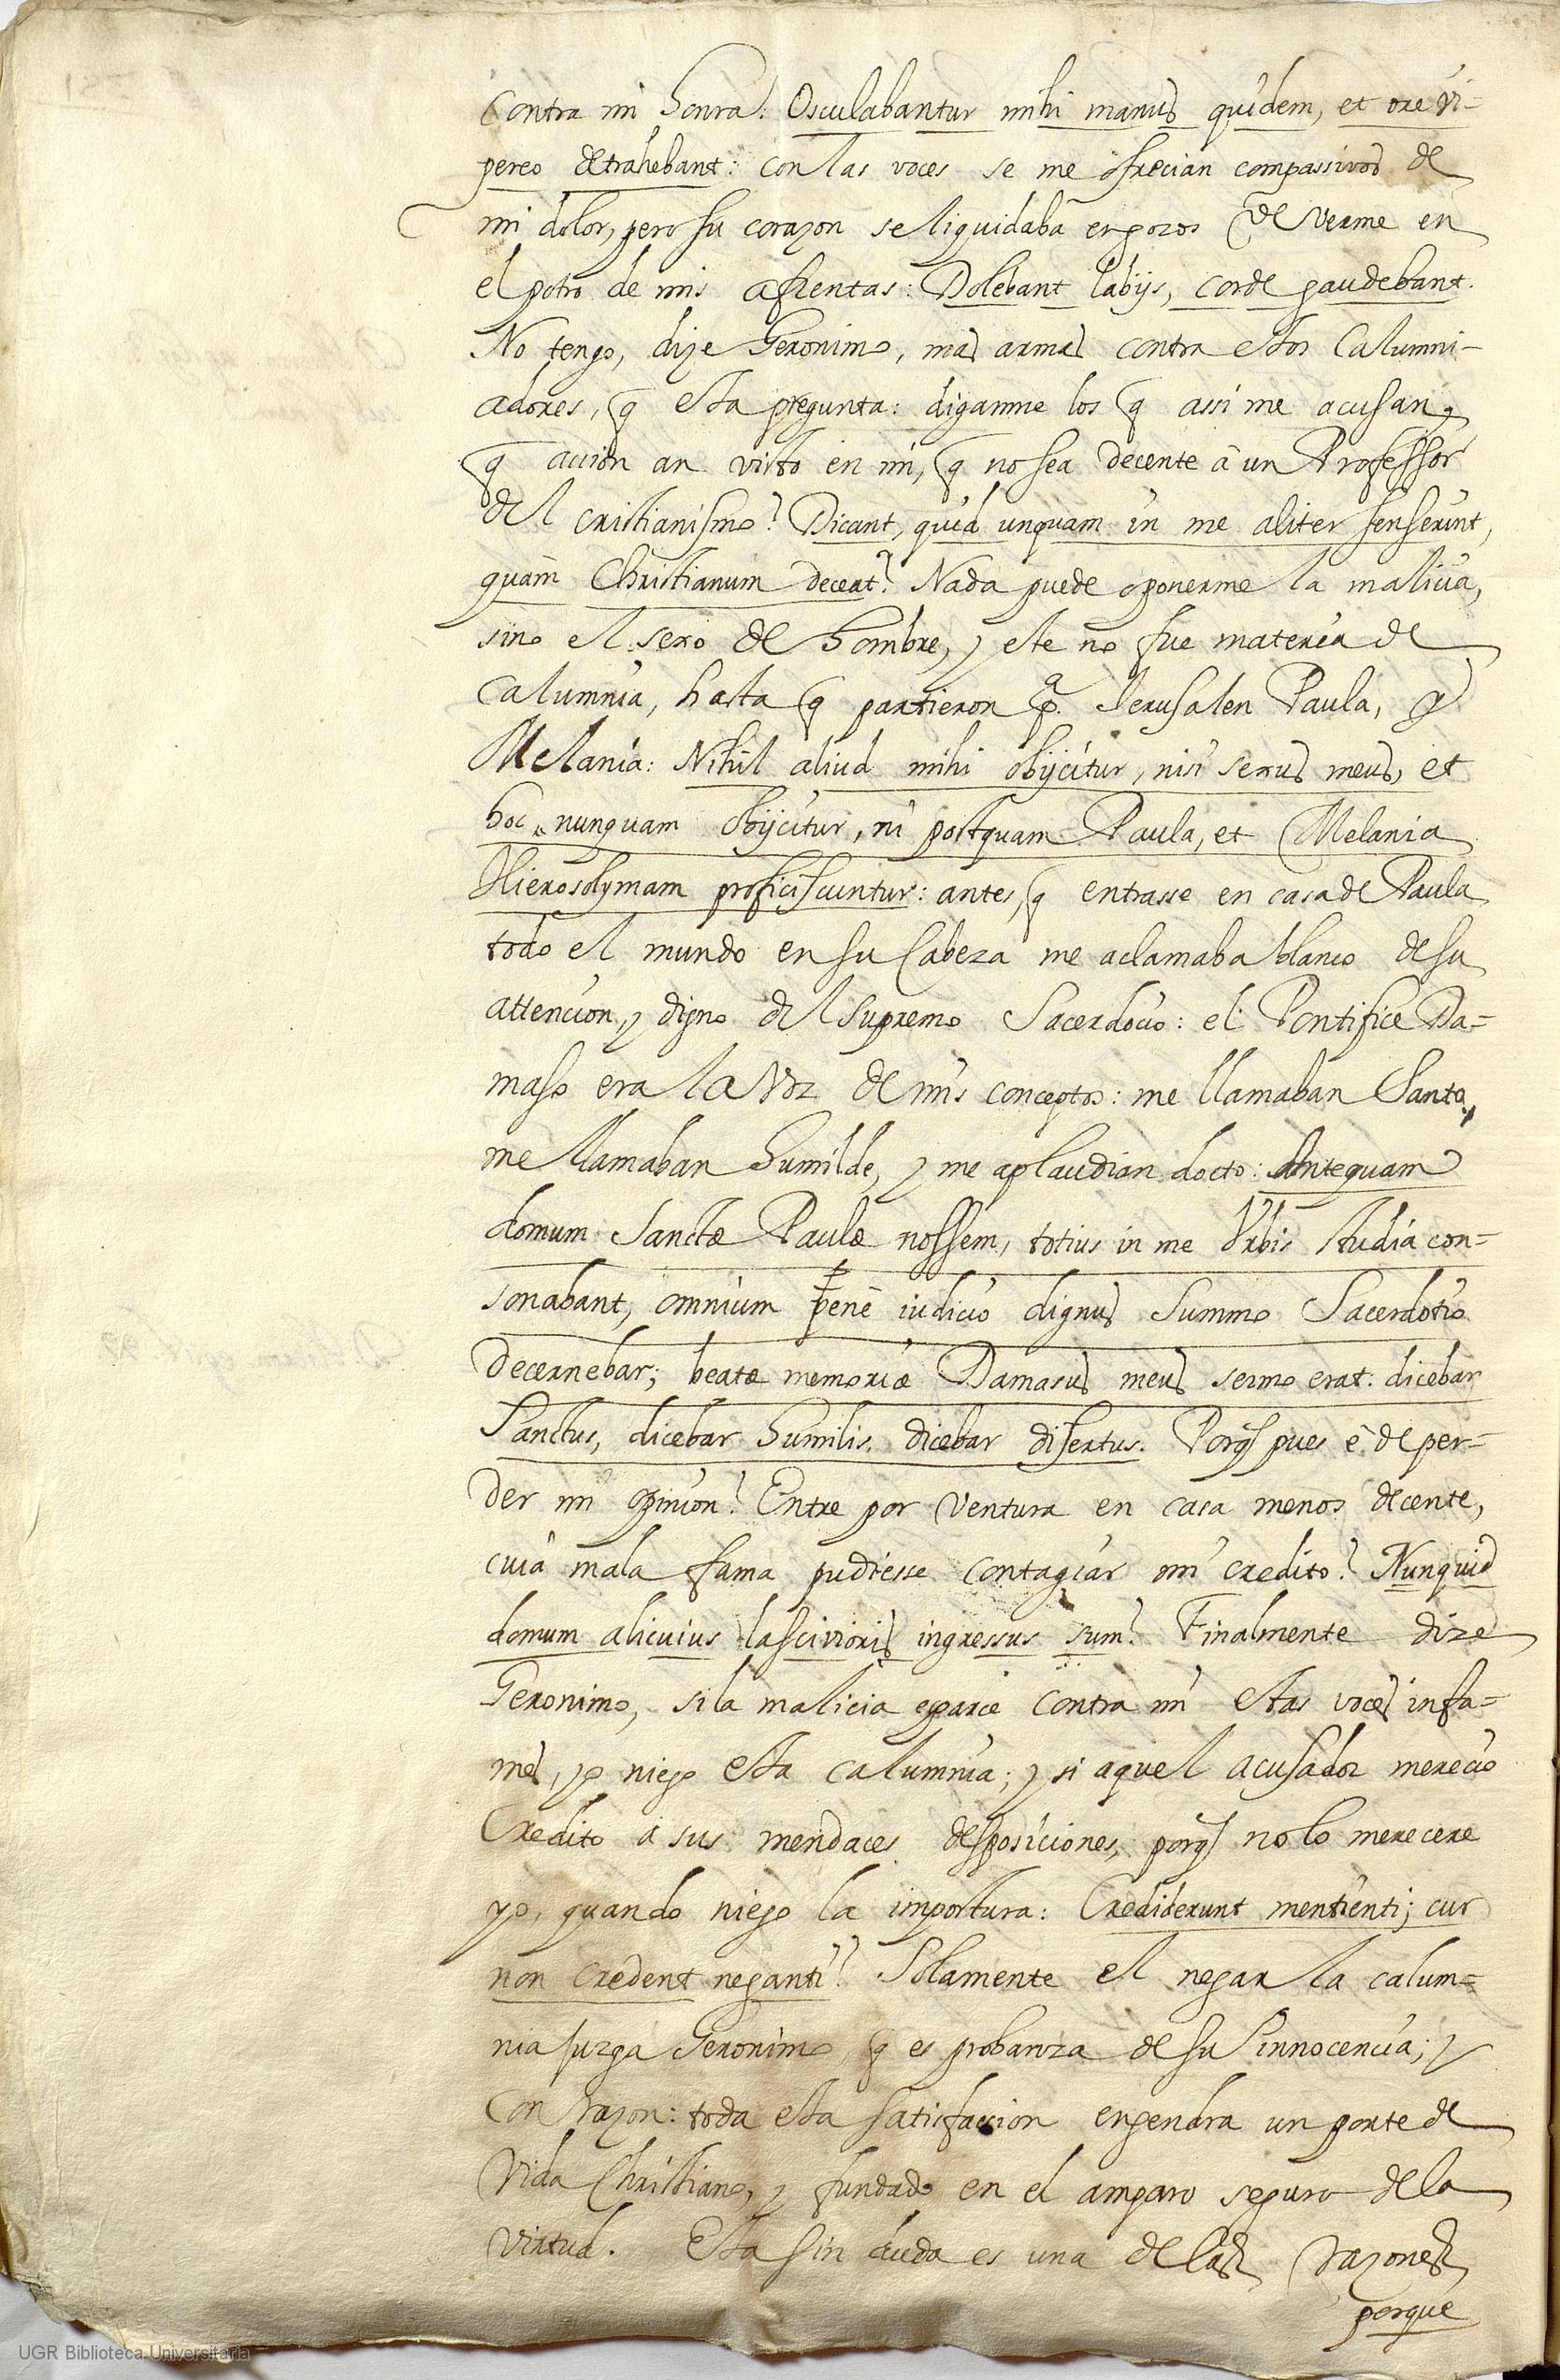 Contra mi honra: Osculabantur mihi manus quidem, et ore vi=
pereo detrahebant: con las voces se me ofrecian compassivos de
mi dolor, pero su corazon se liquidaba en gozos de verme en
el potro de mis afrentas: Dolebant labijs, corde gaudebant.
No tengo, dize Geronimo, mas armas contra estos Calumni=
adores, q̃ esta pregunta: diganme los q̃ assi me acusan,
q̃ accion an visto en mi, q̃ no sea decente à un Professor
del cristianismo? Dicant, quid unquam in me aliter senserint,
quàm Christianum deceat? Nada puede oponerme la malicia,
sino el sexo de hombre, y este no fue materia de
Calumnia, hasta q̃ partieron pª. Jerusalen Paula, y
Melania: Nihil aliud mihi obijcitur, nisi sexus meus, et
hoc nunquam obijcitur, ni postquam Paula, et Melania
Hierosolymam proficiscuntur: antes, q̃ entrasse en casa de Paula
todo el mundo en su Cabeza me aclamaba blanco de su
attencion, y digno del Supremo Sacerdocio: el Pontifice Da=
maso era la voz de mis conceptos: me llamaban Santo,
me llamaban humilde, y me aplaudian docto: Antequam
domum Sanctæ Paulæ nossem, totius in me Urbis studia con=
sonabant, omnium penè iudicio dignus Summo Sacerdotio
decernebar; beatæ memoriæ Damasus meus sermo erat: dicebar
Sanctus, dicebar humilis, dicebar disertus. Porq̃ pues è de per=
der mi opinion? Entre por ventura en casa menos decente,
cuia mala fama pudiesse contagiar mi credito? Nunquid
domum alicuius lascivioris ingressus sum? Finalmente dize
Geronimo, si la malicia esparce contra mi estas voces infa=
mes, yo niego esta calumnia; y si aquel acusador merecio
Credito à sus mendaces desposiciones, porq̃ no lo merecere
yo, quando niego la impostura: Crediderunt mentienti; cur
non credent neganti? Solamente el negar la calum=
nia juzga Geronimo, q̃ es probanza de su innocencia; y
con razon: toda esta satisfaccion engendra un porte de
vida Christiano, y fundado en el amparo seguro de la
virtud. Esta sin duda es una de las razones
porque
UGR Biblioteca Universitaria